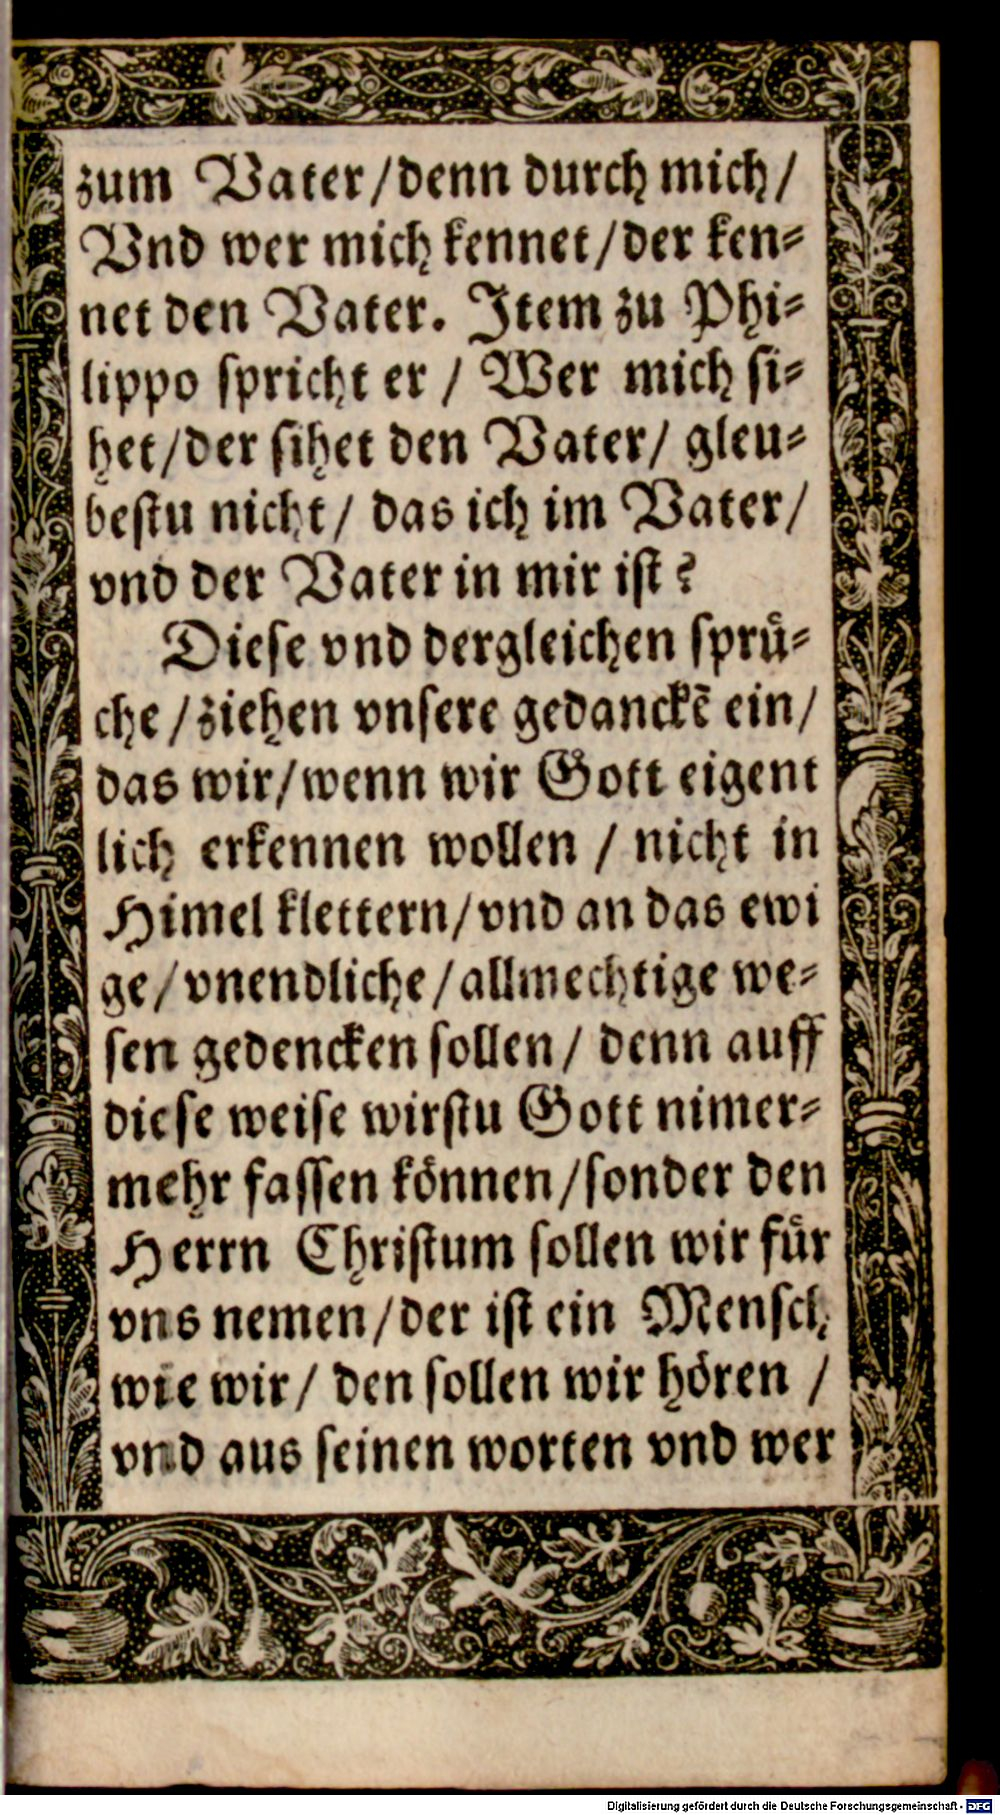 zum Vater/denn durch mich/
Vnd wer mich kennet/der ken⸗
net den Vater. Item zu Phi⸗
lippo spricht er / Wer mich si⸗
het/der sihet den Vater/ gleu⸗
bestu nicht/ das ich im Vater/
vnd der Vater in mir ist?
Diese vnd dergleichen spruͤ⸗
che /ziehen vnsere gedanckē ein/
das wir/wenn wir Gott eigent
lich erkennen wollen / nicht in
Himel klettern/vnd an das ewi
ge/vnendliche/allmechtige we⸗
sen gedencken sollen/ denn auff
diese weise wirstu Gott nimer⸗
mehr fassen koͤnnen/sonder den
Herrn Christum sollen wir fuͤr
vns nemen/der ist ein Mensch
wie wir/ den sollen wir hoͤren /
vnd aus seinen worten vnd wer
Digitalisierung gefördert durch die Deutsche Forschungsgemeinschaft - DFG